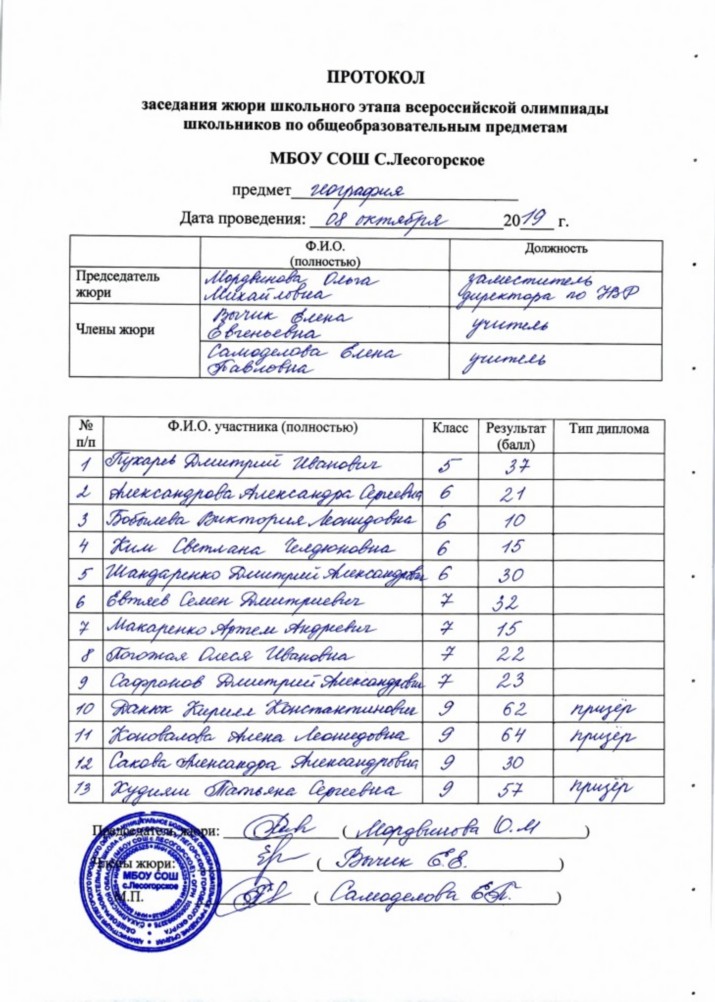 ПРОТОКОЛ
заседания жюри школьного этапа всероссийской олимпиады
школьников по общеобразовательным предметам
МБОУ СОШ С.Лесогорское
предмет география
Дата проведения: 08 октября 2019 г.
Ф.И.О. (полностью) Должность
Председатель жюри Мордвинова Ольга Михайловна заместитель директора по УВР
Члены жюри Вычик Елена Евгеньевна учитель
Самоделова Елена Павловна учитель
№ п/п Ф.И.О. участника (полностью) Класс Результат (балл) Тип диплома
1 Пухарев Дмитрий Иванович 5 37
2 Александрова Александра Сергеевна 6 21
3 Бобылева Виктория Леонидовна 6 10
4 Ким Светлана 6 15
5 Шандаренко Дмитрий Александрович 6 30
6 Евтяев Семен Дмитриевич 7 32
7 Макаренко Артем Андреевич 7 15
8 Погожая Олеся Ивановна 7 22
9 Сафронов Дмитрий Александрович 7 23
10 Кирилл Константинович 9 62 призёр
11 Коновалова Алена Леонидовна 9 64 призёр
12 Сакова Александра Александровна 9 30
13 Татьяна Сергеевна 9 57 призёр
Председатель жюри: ( Мордвинова О.М )
Члены жюри: ( Вычик Е.Е. )
М.П. ( Самоделова Е.П. )
МБОУ СОШ
с.Лесогорское